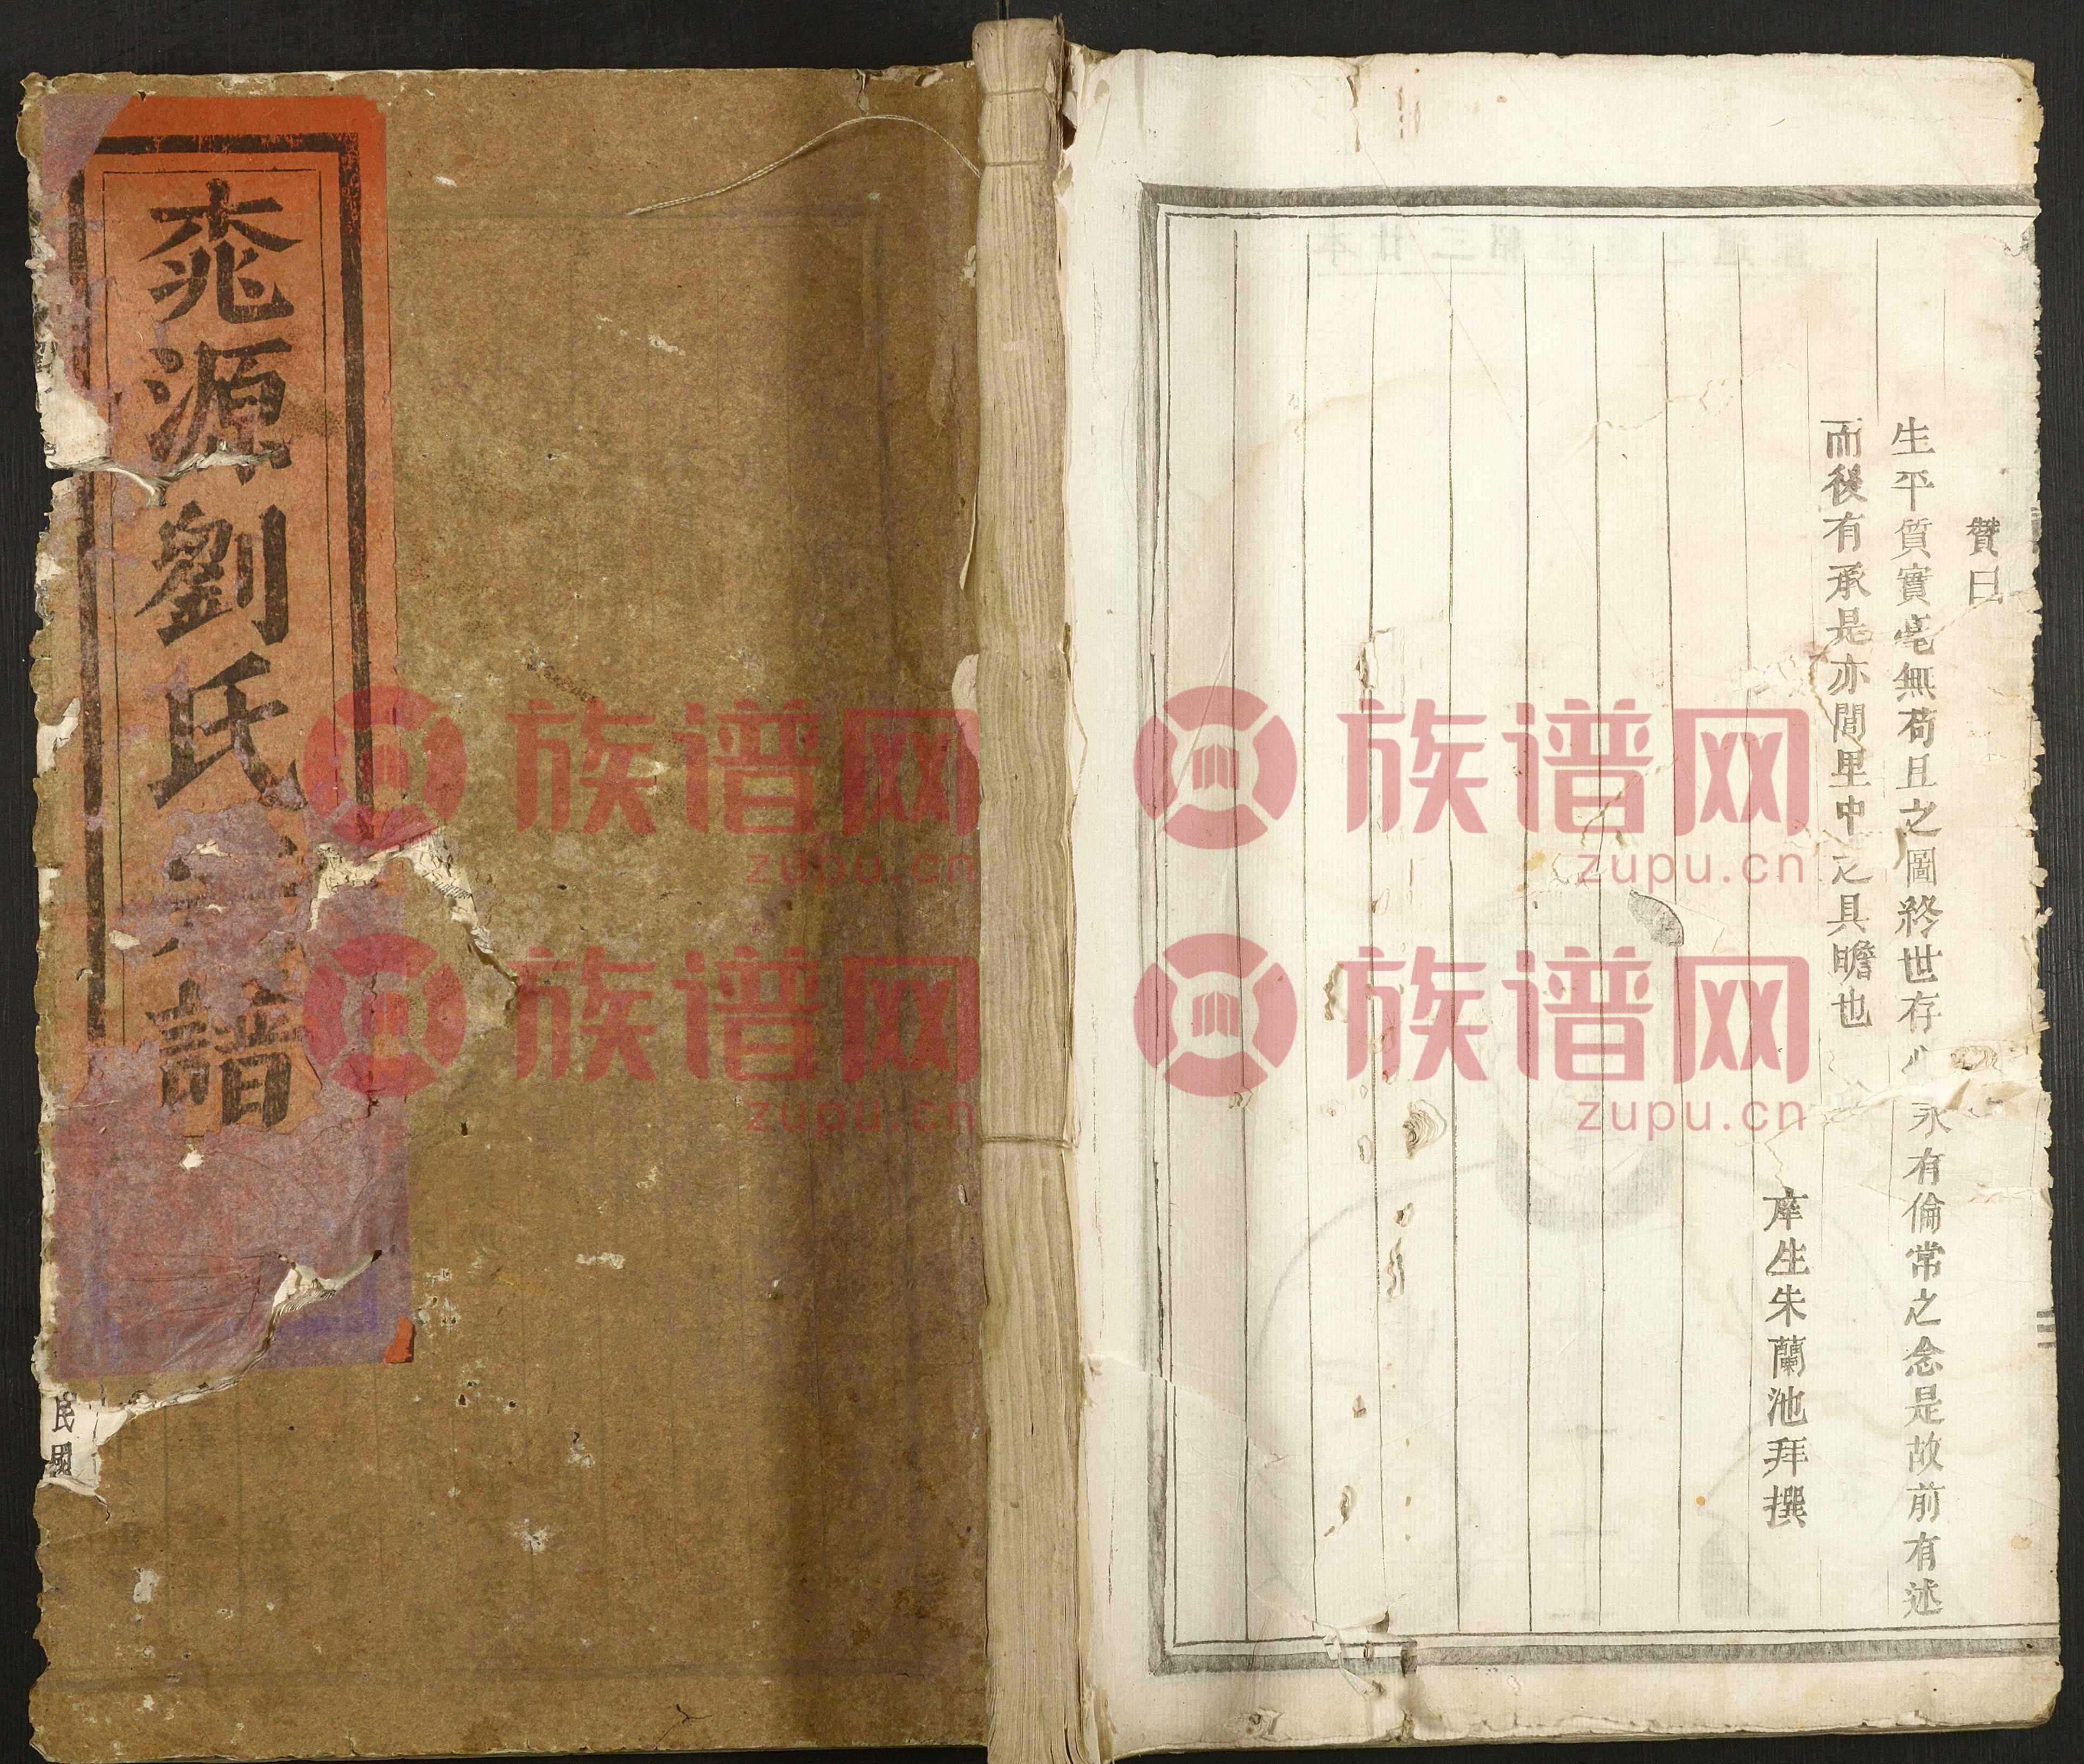 桃源劉氏宗譜
民國
贊曰
生平質實毫無苟且之圖終世存心永有倫常之念是故前有述
而後有承是亦閭里中之具瞻也
庠生朱蘭池拜撰
族谱网
zupu.cn
族谱网
zupu.cn
族谱网
zupu.cn
族谱网
zupu.cn